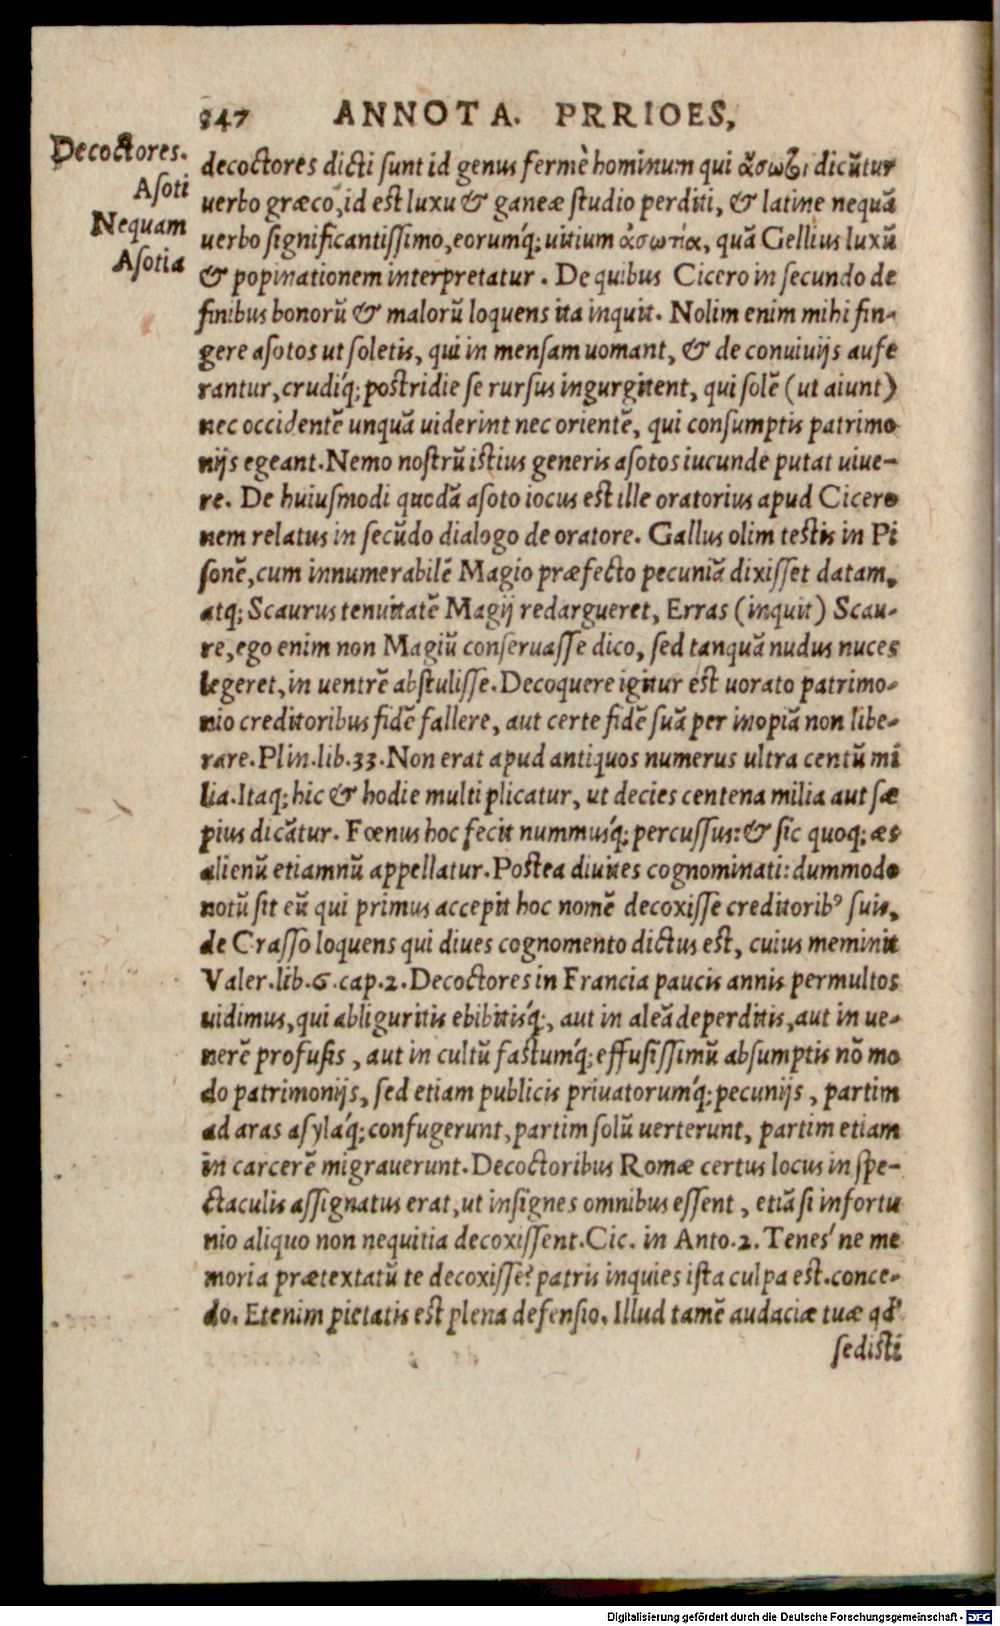 847 ANNOTA. PRRIOES,
Decoctores.
Asoti
Nequam
Asotia
decoctores dicti sunt id genus fermè hominum qui ἄσωτοι dicũtur
uerbo græco, id est luxu & ganeæ studio perditi, & latine nequã
uerbo significantissimo, eorumq́; uitium ἀσωτία, quã Gellius luxũ
& popinationem interpretatur. De quibus Cicero in secundo de
finibus bonorũ & malorũ loquens ita inquit. Nolim enim mihi fin-
gere asotos ut soletis, qui in mensam uomant, & de conuiuijs aufe
rantur, crudiq́; postridie se rursus ingurgitent, qui solẽ (ut aiunt)
nec occidentẽ unquã uiderint nec orientẽ, qui consumptis patrimo
nijs egeant. Nemo nostrũ istius generis asotos iucunde putat uiue-
re. De huiusmodi quodã asoto iocus est ille oratorius apud Cicero
nem relatus in secũdo dialogo de oratore. Gallus olim testis in Pi
sonẽ, cum innumerabilẽ Magio præfecto pecuniã dixisset datam,
atq; Scaurus tenuitatẽ Magij redargueret, Erras (inquit) Scau-
re, ego enim non Magiũ conseruasse dico, sed tanquã nudus nuces
legeret, in uentrẽ abstulisse. Decoquere igitur est uorato patrimo-
nio creditoribus fidẽ fallere, aut certe fidẽ suã per inopiã non libe-
rare. Plin. lib. 33. Non erat apud antiquos numerus ultra centũ mi
lia. Itaq; hic & hodie multiplicatur, ut decies centena milia aut sæ
pius dicãtur. Fœnus hoc fecit nummusq́; percussus: & sic quoq; æs
alienũ etiamnũ appellatur. Postea diuites cognominati: dummodo
notũ sit eũ qui primus accepit hoc nomẽ decoxisse creditorib⁹ suis,
de Crasso loquens qui diues cognomento dictus est, cuius meminit
Valer. lib. 6. cap. 2. Decoctores in Francia paucis annis permultos
uidimus, qui abliguritis ebibitisq́;, aut in aleã deperditis, aut in ue-
nerẽ profusis, aut in cultũ fastumq́; effusissimũ absumptis nõ mo
do patrimonijs, sed etiam publicis priuatorumq́; pecunijs, partim
ad aras asylaq́; confugerunt, partim solũ uerterunt, partim etiam
in carcerẽ migrauerunt. Decoctoribus Romæ certus locus in spe-
ctaculis assignatus erat, ut insignes omnibus essent, etiã si infortu
nio aliquo non nequitia decoxissent. Cic. in Anto. 2. Tenes´ne me
moria prætextatũ te decoxisse? patris inquies ista culpa est. conce-
do. Etenim pietatis est plena defensio. Illud tamẽ audaciæ tuæ qď
sedisti
Digitalisierung gefördert durch die Deutsche Forschungsgemeinschaft - DFG